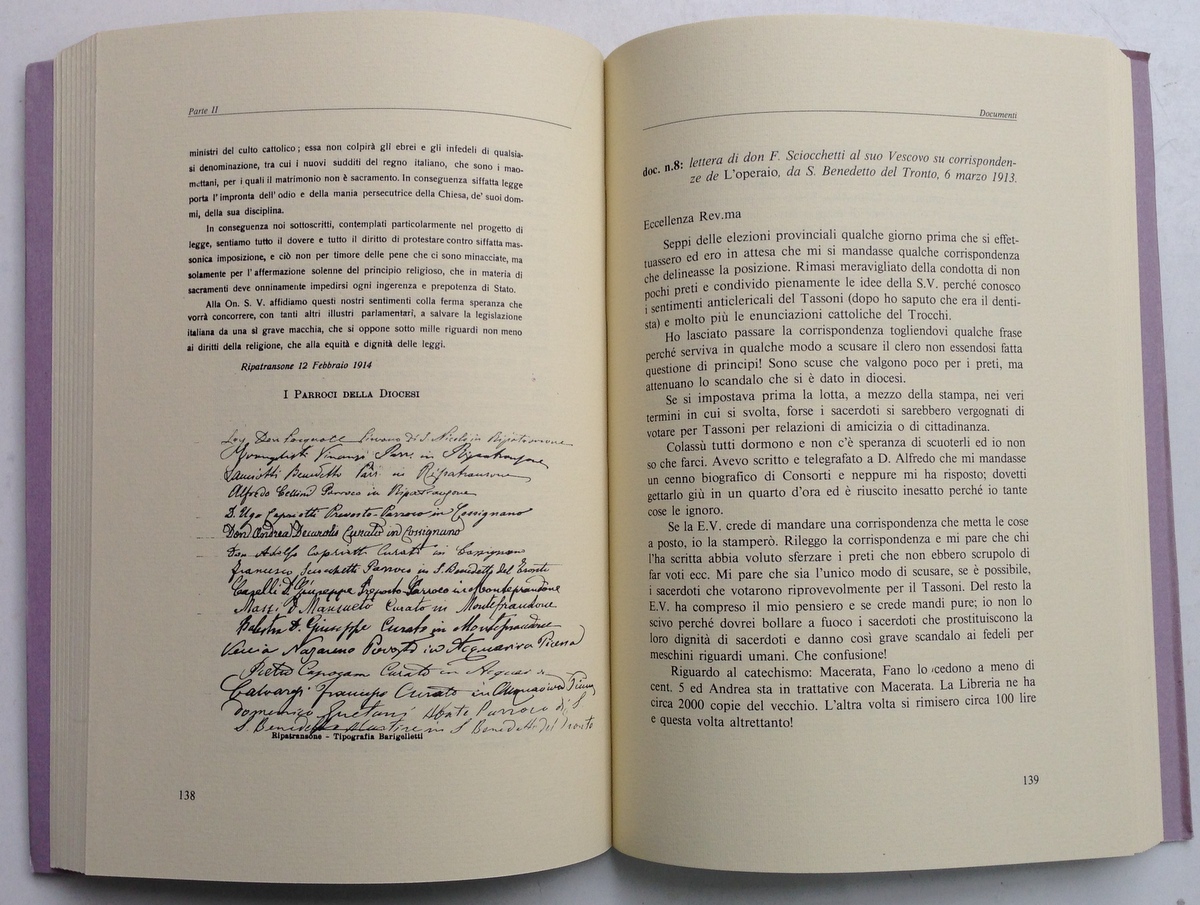 Parte II
ministri del culto cattolico; essa non colpirà gli ebrei e gli infedeli di qualsia-
si denominazione, tra cui i nuovi sudditi del regno italiano, che sono i mao-
mettani, per i quali il matrimonio non è sacramento. In conseguenza siffatta legge
porta l'impronta dell'odio e della mania persecutrice della Chiesa, de' suoi dom-
mi, della sua disciplina.
In conseguenza noi sottoscritti, contemplati particolarmente nel progetto di
legge, sentiamo tutto il dovere e tutto il diritto di protestare contro siffatta mas-
sonica imposizione, e ciò non per timore delle pene che ci sono minacciate, ma
solamente per l'affermazione solenne del principio religioso, che in materia di
sacramenti deve onninamente impedirsi ogni ingerenza e prepotenza di Stato.
Alla On. S. V. affidiamo questi nostri sentimenti colla ferma speranza che
vorrà concorrere, con tanti altri illustri parlamentari, a salvare la legislazione
italiana da una sì grave macchia, che si oppone sotto mille riguardi non meno
ai diritti della religione, che alla equità e dignità delle leggi.
Ripatransone 12 Febbraio 1914
I Parroci della Diocesi
Don Pasquale di S. Nicolò in Ripatransone
Vincenzo Parr. in Ripatransone
Benedetto Parr. in Ripatransone
Alfredo Cellini Parroco in Ripatransone
D. Ugo Capriotti Prevosto-Parroco in Cossignano
Don Andrea Curato in Cossignano
Don Adolfo Capriotti Curato in Cossignano
Francesco Sciocchetti Parroco in S. Benedetto del Tronto
D. Giuseppe Preposto Parroco in Monteprandone
Massi D. Mansueto Curato in Monteprandone
Balestra D. Giuseppe Curato in Monteprandone
Nazareno Prevosto in Acquaviva Picena
Pietro Curato in Acquaviva
Francesco Curato in Acquaviva Picena
Domenico Abate Parroco di S.
S. Benedetto Martire in S. Benedetto del Tronto
Ripatransone - Tipografia Barigelletti
138
Documenti
doc. n.8: lettera di don F. Sciocchetti al suo Vescovo su corrisponden-
ze de L'operaio, da S. Benedetto del Tronto, 6 marzo 1913.
Eccellenza Rev.ma
Seppi delle elezioni provinciali qualche giorno prima che si effet-
tuassero ed ero in attesa che mi si mandasse qualche corrispondenza
che delineasse la posizione. Rimasi meravigliato della condotta di non
pochi preti e condivido pienamente le idee della S.V. perché conosco
i sentimenti anticlericali del Tassoni (dopo ho saputo che era il denti-
sta) e molto più le enunciazioni cattoliche del Trocchi.
Ho lasciato passare la corrispondenza togliendovi qualche frase
perché serviva in qualche modo a scusare il clero non essendosi fatta
questione di principi! Sono scuse che valgono poco per i preti, ma
attenuano lo scandalo che si è dato in diocesi.
Se si impostava prima la lotta, a mezzo della stampa, nei veri
termini in cui si svolta, forse i sacerdoti si sarebbero vergognati di
votare per Tassoni per relazioni di amicizia o di cittadinanza.
Colassù tutti dormono e non c'è speranza di scuoterli ed io non
so che farci. Avevo scritto e telegrafato a D. Alfredo che mi mandasse
un cenno biografico di Consorti e neppure mi ha risposto; dovetti
gettarlo giù in un quarto d'ora ed è riuscito inesatto perché io tante
cose le ignoro.
Se la E.V. crede di mandare una corrispondenza che metta le cose
a posto, io la stamperò. Rileggo la corrispondenza e mi pare che chi
l'ha scritta abbia voluto sferzare i preti che non ebbero scrupolo di
far voti ecc. Mi pare che sia l'unico modo di scusare, se è possibile,
i sacerdoti che votarono riprovevolmente per il Tassoni. Del resto la
E.V. ha compreso il mio pensiero e se crede mandi pure; io non lo
scivo perché dovrei bollare a fuoco i sacerdoti che prostituiscono la
loro dignità di sacerdoti e danno così grave scandalo ai fedeli per
meschini riguardi umani. Che confusione!
Riguardo al catechismo: Macerata, Fano lo cedono a meno di
cent. 5 ed Andrea sta in trattative con Macerata. La Libreria ne ha
circa 2000 copie del vecchio. L'altra volta si rimisero circa 100 lire
e questa volta altrettanto!
139